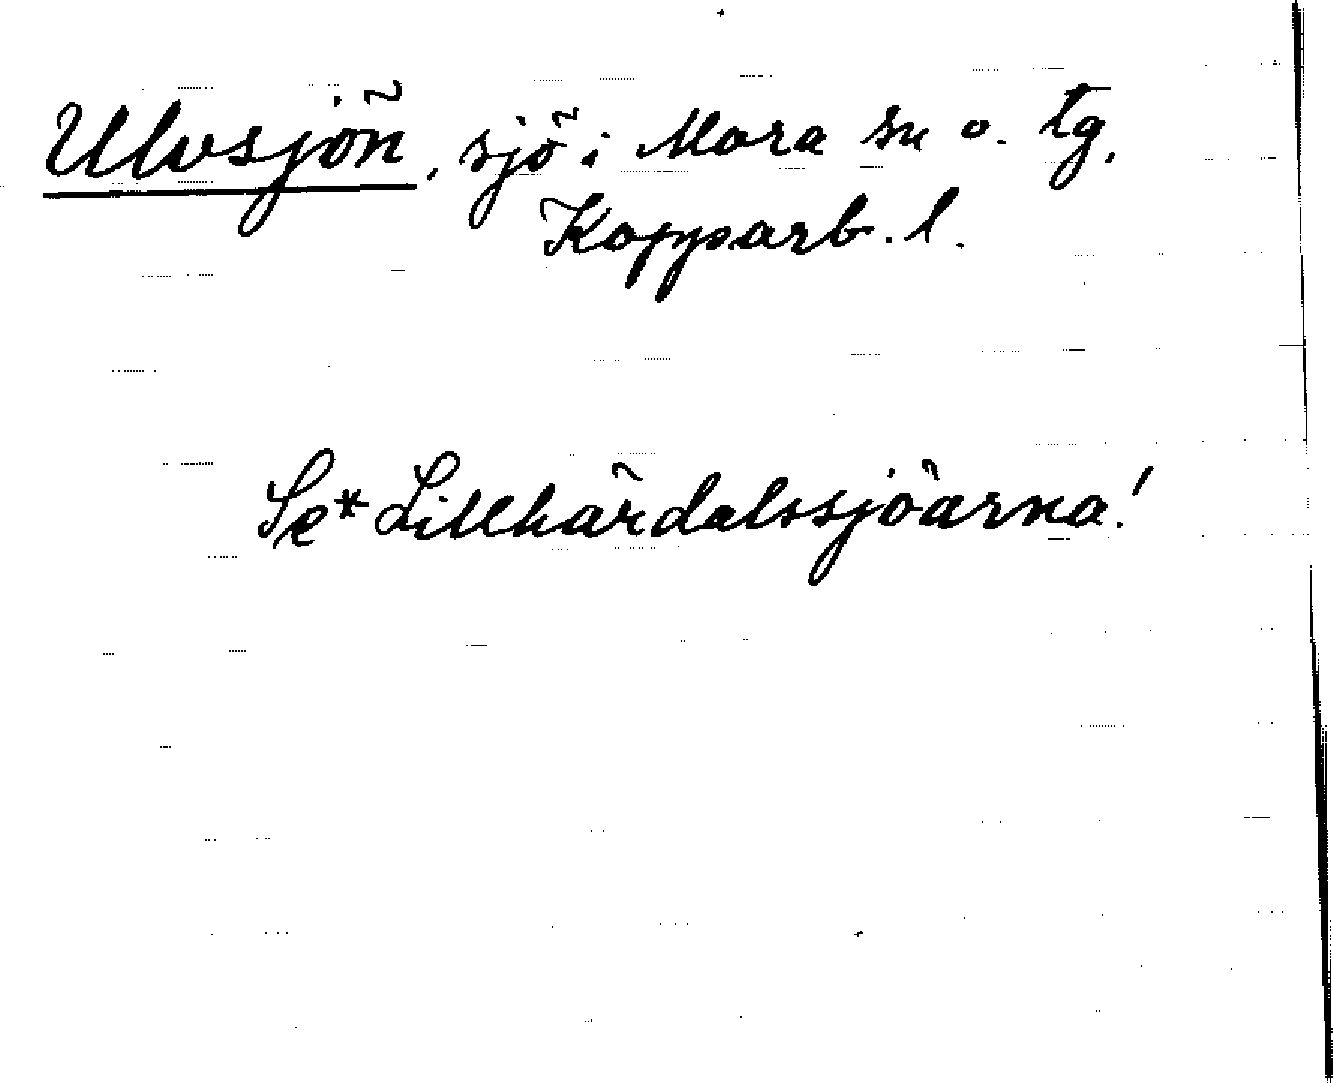 Ulvsjön, sjö i Mora sn o. tg,
Kopparb. l.
Se *Lillhärdalssjöarna!